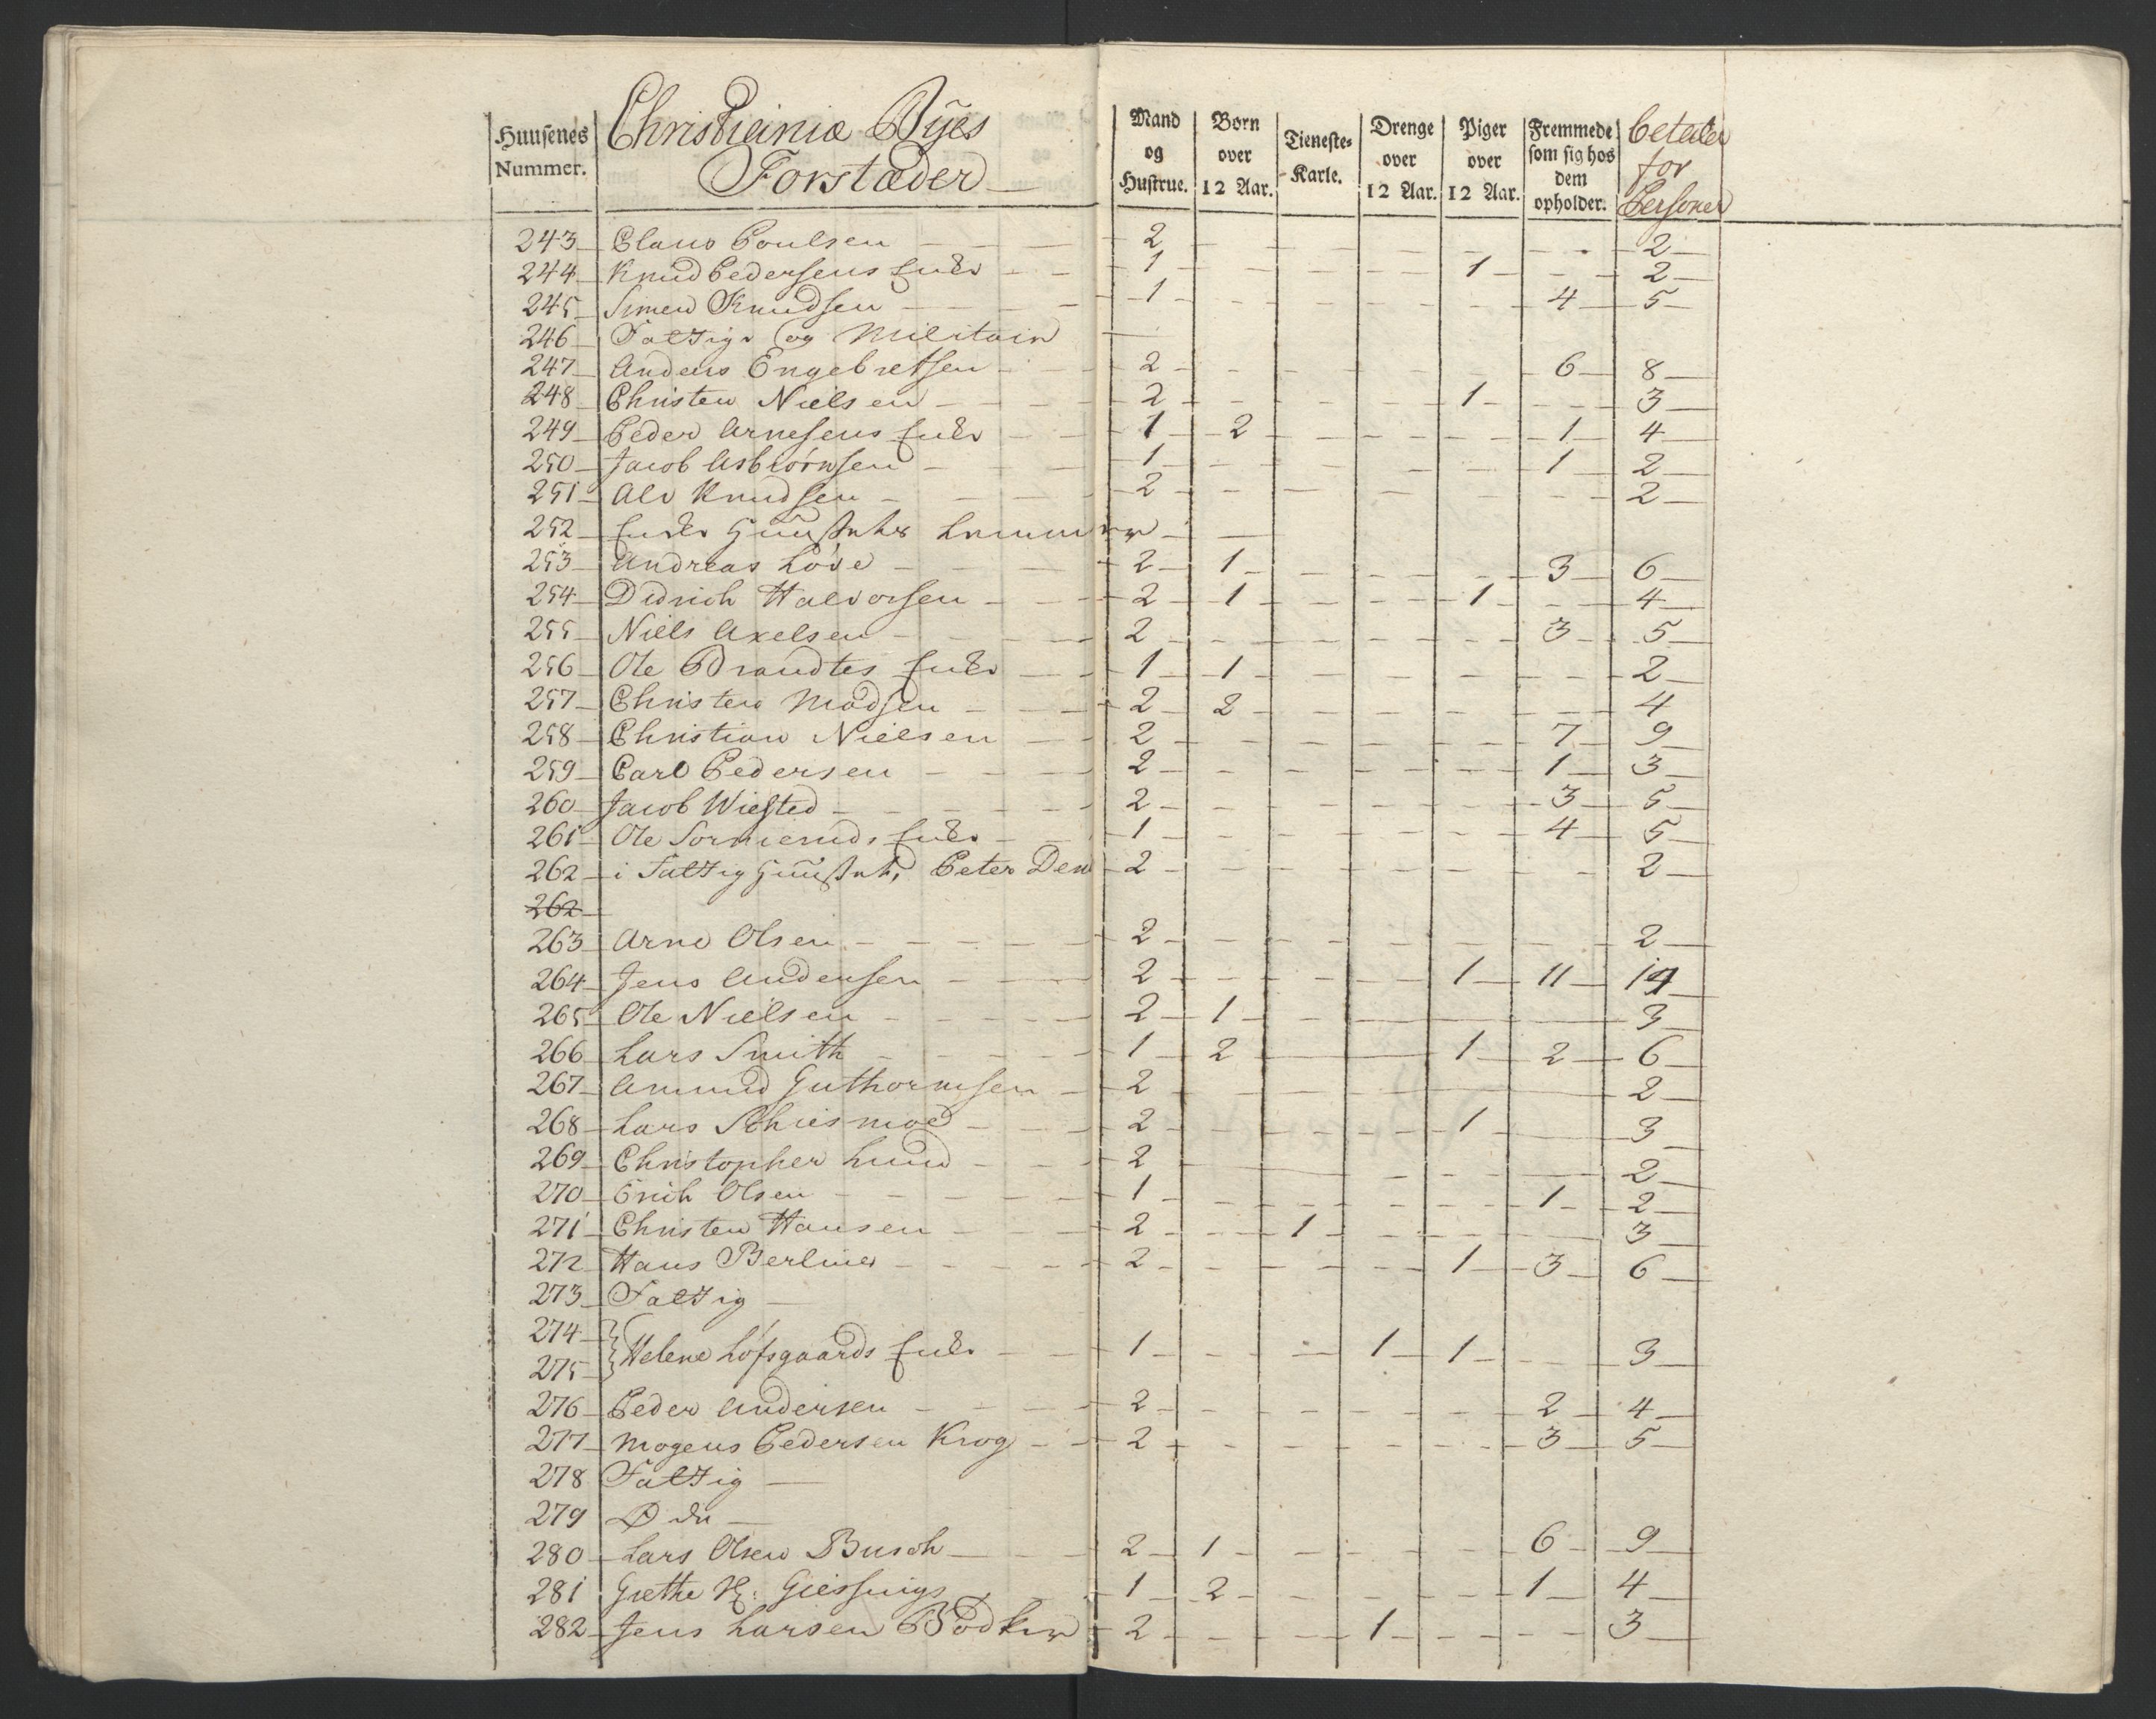 Huusenes Nummer.
Christiania Byes
Forstæder
Mand og Hustrue.
Børn over 12 Aar.
Tieneste-Karle.
Drenge over 12 Aar.
Piger over 12 Aar.
Fremmede som sig hos dem opholder.
betaler for Personer
243 Claus Poulsen 2 2
244 Knud Pedersens Enke 1 1 2
245 Simen Knudsen 1 4 5
246 Fattige og Militair
247 Anders Engebretsen 2 6 8
248 Christen Nielsen 2 1 3
249 Peder Arnesens Enke 1 2 1 4
250 Jacob Asbiørnsen 1 1 2
251 Ale Knudsen 2 2
252 Enke
253 Andreas Løve 2 1 3 6
254 Didrich Halvorsen 2 1 1 4
255 Niels Axelsen 2 3 5
256 Ole Brandtes Enke 1 1 2
257 Christen Madsen 2 2 4
258 Christian Nielsen 2 7 9
259 Carl Pedersen 2 1 3
260 Jacob Wiested 2 3 5
261 Ole Enke 1 4 5
262 i Fattig Peter Den 2 2
262
263 Arne Olsen 2 2
264 Jens Andersen 2 1 11 14
265 Ole Nielsen 2 1 3
266 Lars Smith 1 2 1 2 6
267 Amund Guthormsen 2 2
268 Lars Schiesmoe 2 1 3
269 Christopher Lund 2 2
270 Erich Olsen 1 1 2
271 Christen Hansen 2 1 3
272 Hans Berliner 2 1 3 6
273 Fattig
274
275 Helene Løfsgaards Enke 1 1 1 3
276 Peder Andersen 2 2 4
277 Mogens Pedersen Krog 2 3 5
278 Fattig
279
280 Lars Olsen Busch 2 1 6 9
281 Grethe Giessings 1 2 1 4
282 Jens Larsen Bødker 2 1 3